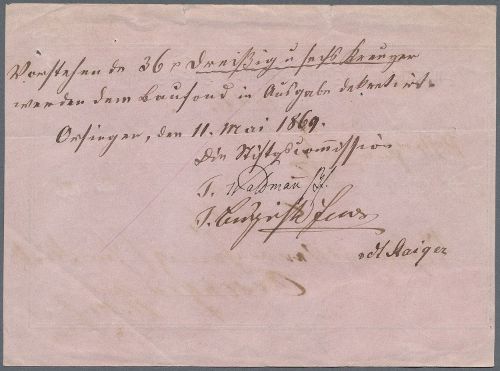 Vorstehende 36 x Dreißig u sechs Kreuzer
werden dem Baufond in Ausgabe dekretirt.
Orsingen, den 11. Mai 1869.
Die Stiftgscommission
T. Waldman
T.
vdt Staiger